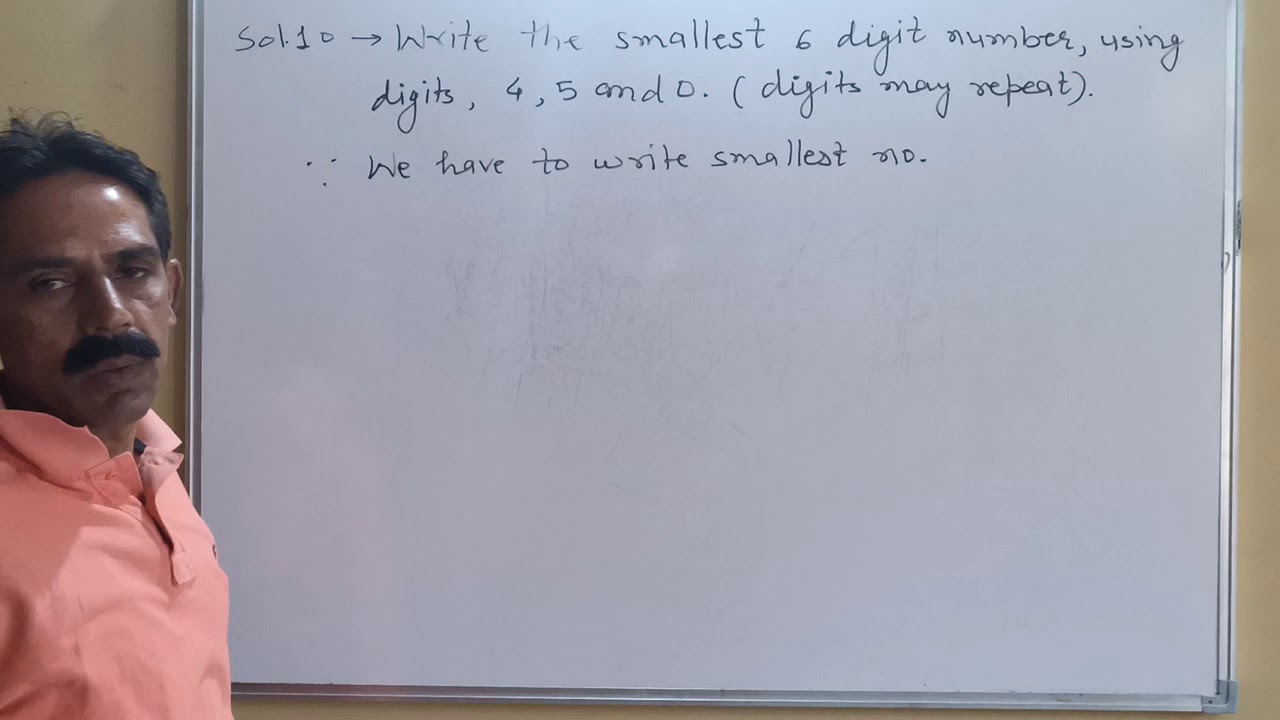 Sol.10 → Write the smallest 6 digit number, using
digits, 4, 5 and 0. (digits may repeat).
∵ We have to write smallest no.